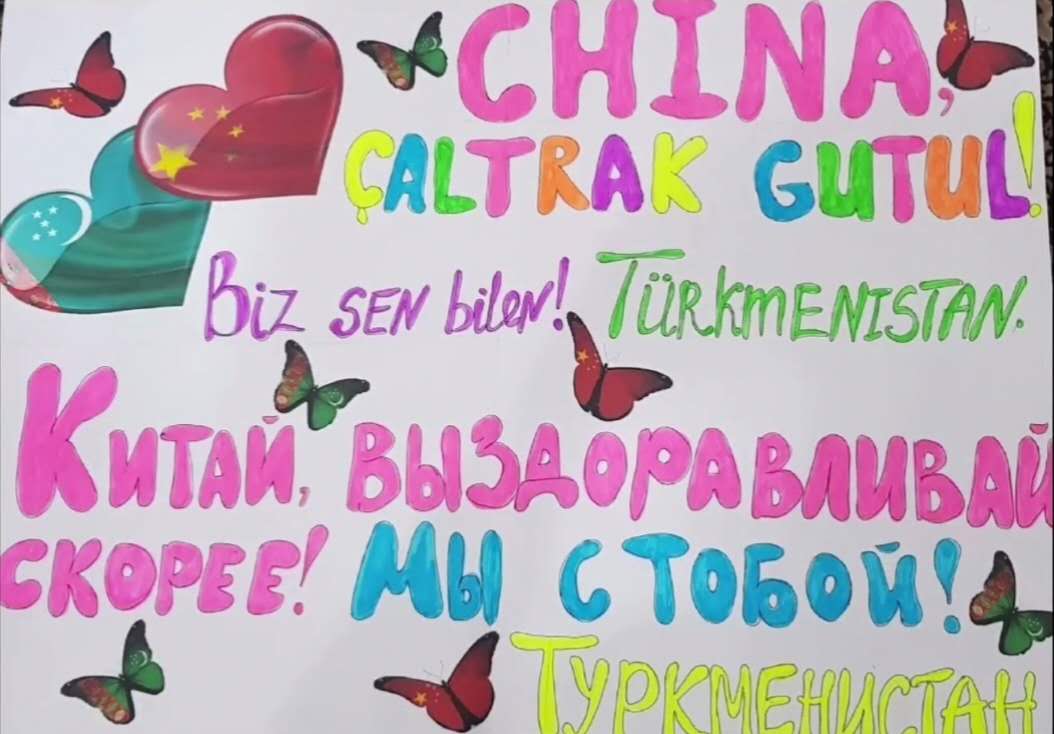 CHINA,
ÇALTRAK GUTUL!
Biz SEN bilen! TÜRkmENISTAN.
КИТАЙ, ВЫЗДОРАВЛИВАЙ
СКОРЕЕ! МЫ С ТОБОЙ!
ТУРКМЕНИСТАН